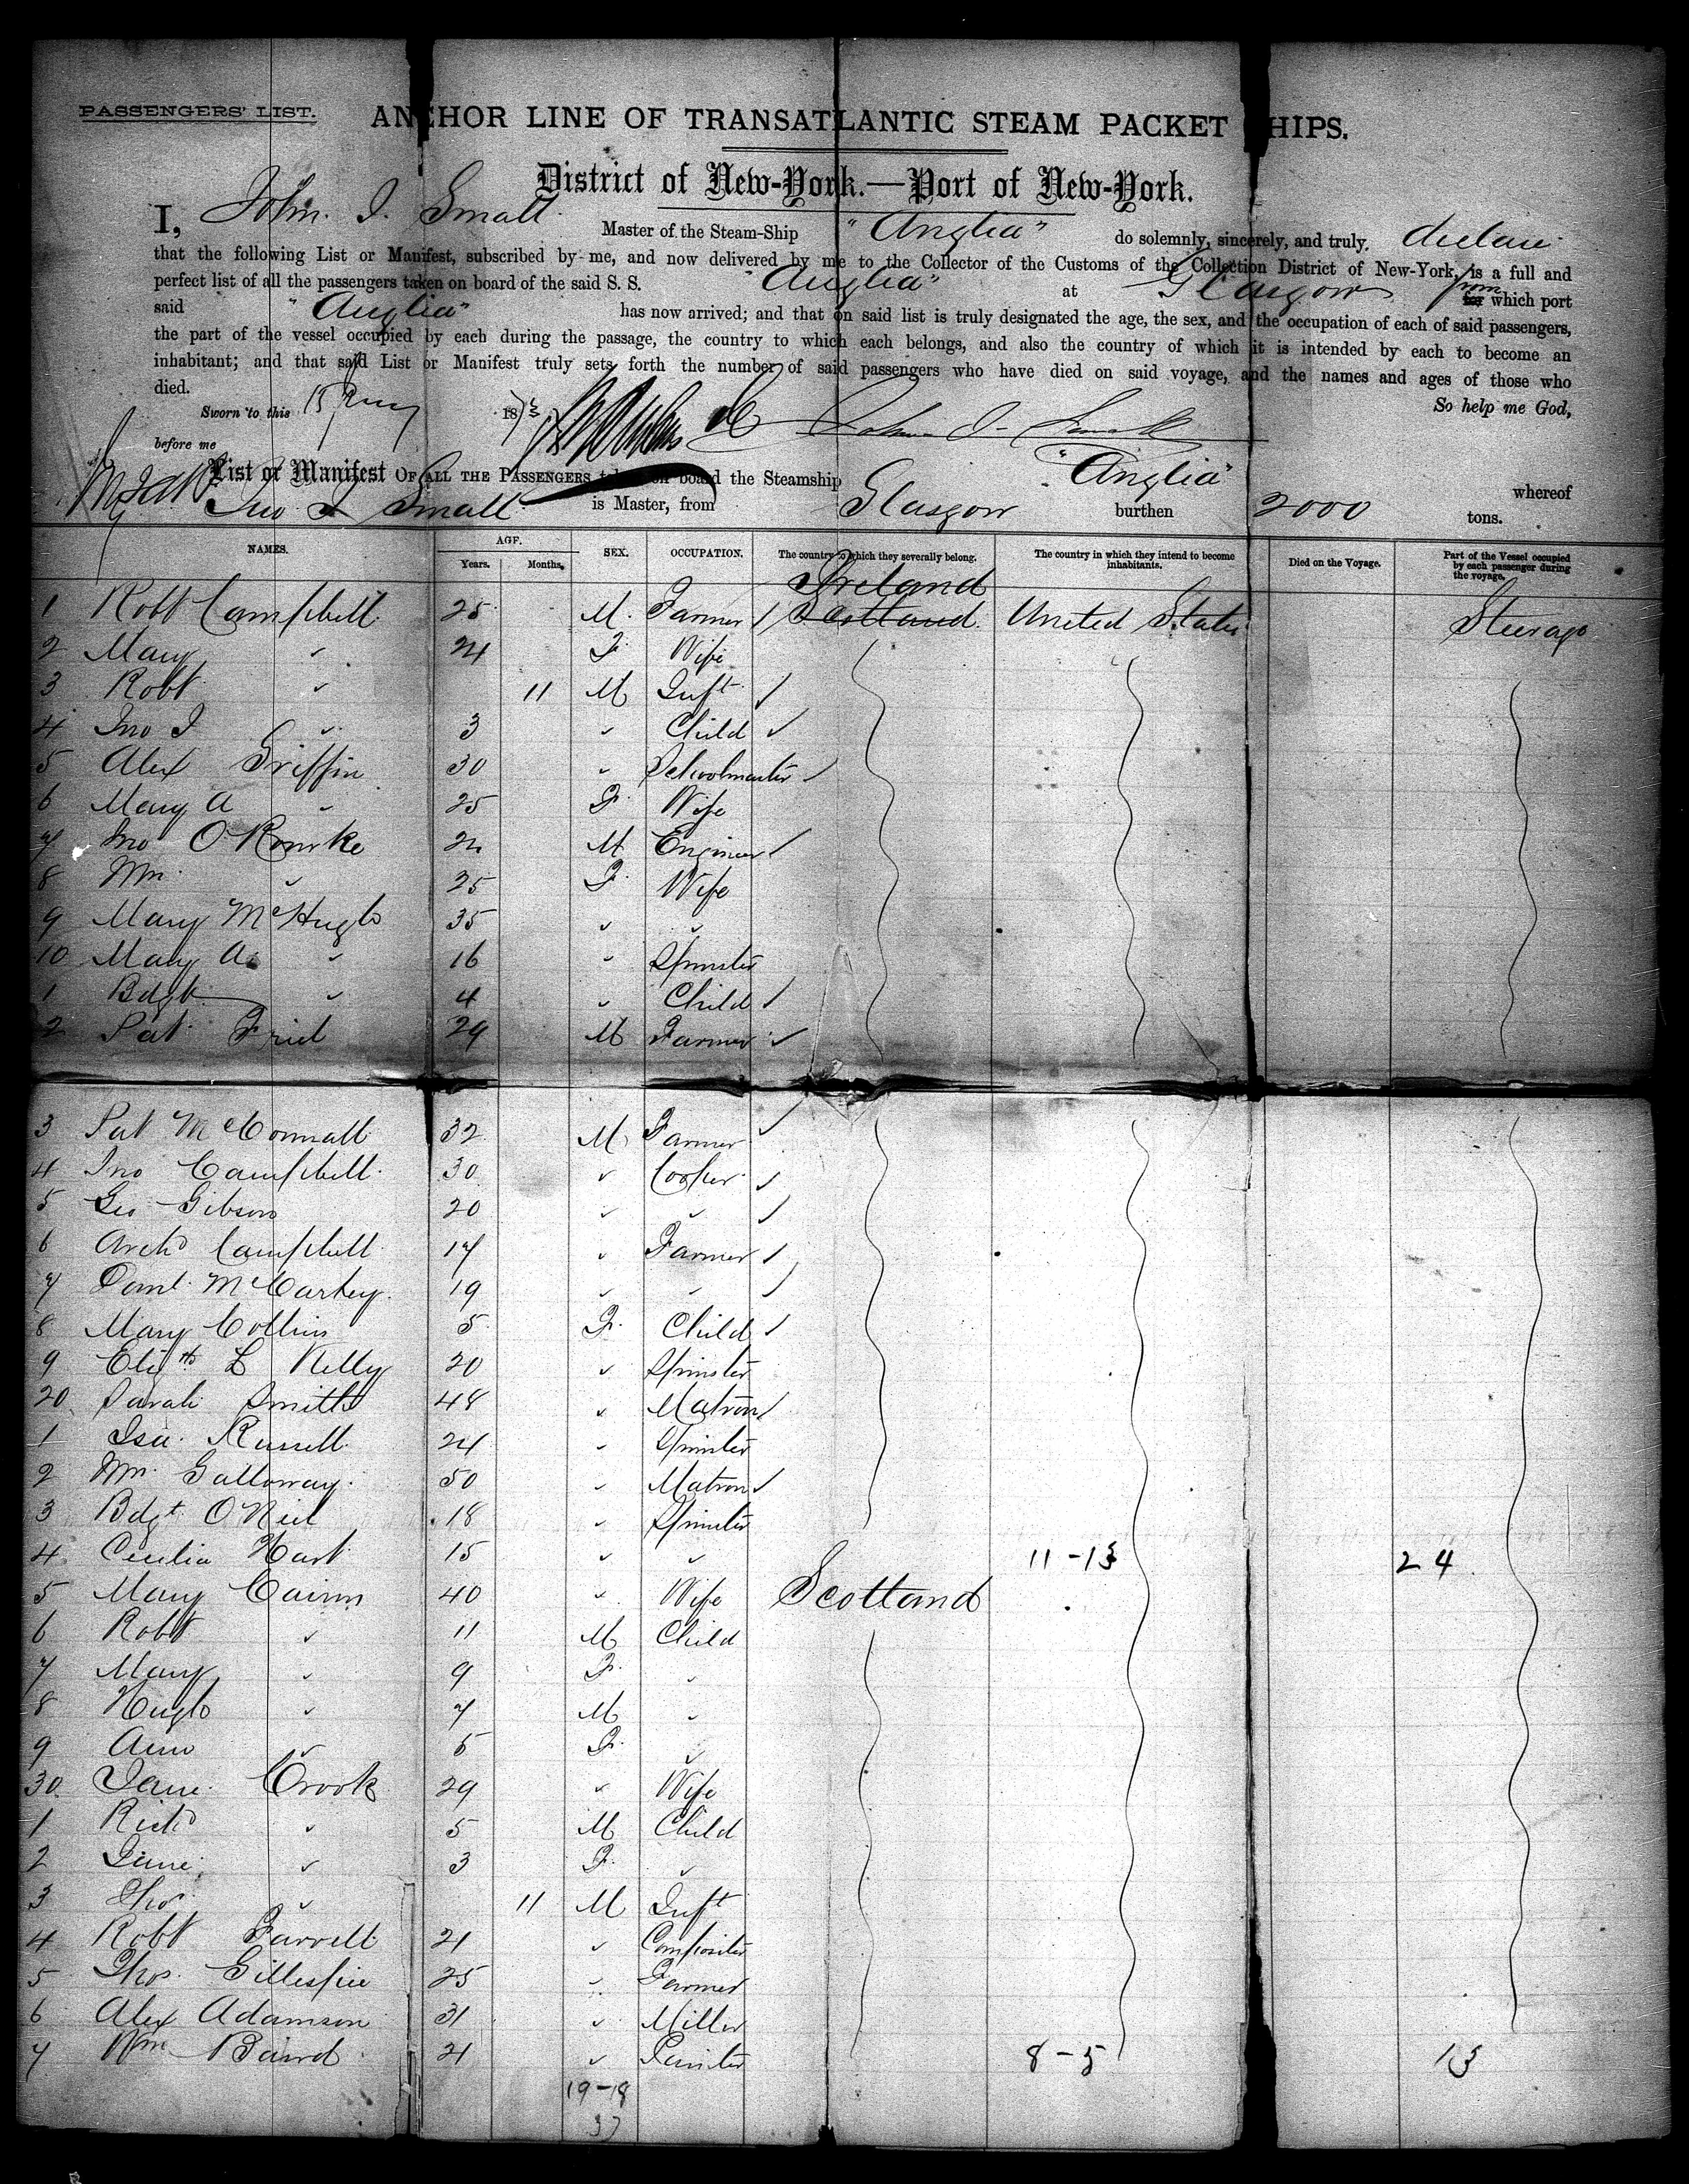 PASSENGERS' LIST.
ANCHOR LINE OF TRANSATLANTIC STEAM PACKET SHIPS.
District of New-York.—Port of New-York.
I, John. I. Small. Master of the Steam-Ship "Anglia" do solemnly, sincerely, and truly, declare
that the following List or Manifest, subscribed by me, and now delivered by me to the Collector of the Customs of the Collection District of New-York, is a full and
perfect list of all the passengers taken on board of the said S. S. "Anglia" at Glasgow from for which port
said "Anglia" has now arrived; and that on said list is truly designated the age, the sex, and the occupation of each of said passengers,
the part of the vessel occupied by each during the passage, the country to which each belongs, and also the country of which it is intended by each to become an
inhabitant; and that said List or Manifest truly sets forth the number of said passengers who have died on said voyage, and the names and ages of those who
died. So help me God,
Sworn to this 15 187 John I. Small
before me
List or Manifest OF ALL THE PASSENGERS taken on board the Steamship "Anglia" whereof
Jno I Small is Master, from Glasgow burthen 2000 tons.
NAMES. AGE. Years. Months. SEX. OCCUPATION. The country to which they severally belong. The country in which they intend to become inhabitants. Died on the Voyage. Part of the Vessel occupied by each passenger during the voyage.
Ireland
1 Robt Campbell 25 M. Farmer Scotland United States Steerage
2 Mary " 24 F. Wife
3 Robt " 11 M Inft
4 Jno I " 3 " Child
5 Alex Griffin 30 " Schoolmaster
6 Mary A " 25 F. Wife
7 Jno O'Rourke 24 M Engineer
8 Mrs " 25 F. Wife
9 Mary McHugh 35 " "
10 Mary A. " 16 " Spinster
1 Bdgt " 4 " Child
2 Pat Friel 29 M Farmer
3 Pat McConnall 32 M Farmer
4 Jno Campbell 30 " Cooper
5 Geo Gibson 20 " "
6 Archd Campbell 17 " Farmer
7 Danl McCarkey 19 " "
8 Mary Collins 5 F. Child
9 Elizth L Kelly 20 " Spinster
20 Sarah Smith 48 " Matron
1 Isa. Russell 24 " Spinster
2 Mrs Galloway 50 " Matron
3 Bdgt O'Neil 18 " Spinster
4 Cecilia Hart 15 " " 11-13 24
5 Mary Cairns 40 " Wife Scotland
6 Robt " 11 M Child
7 Mary " 9 F. "
8 Hugh " 7 M "
9 Ann " 5 F. "
30 Jane Crook 29 " Wife
1 Richd " 5 M Child
2 Jane " 3 F. "
3 Thos " 11 M Inft
4 Robt Farrell 21 " Compositor
5 Thos. Gillespie 25 " Farmer
6 Alex Adamson 31 " Miller
7 Wm Baird 21 " Painter 8-5 13
19-18
37